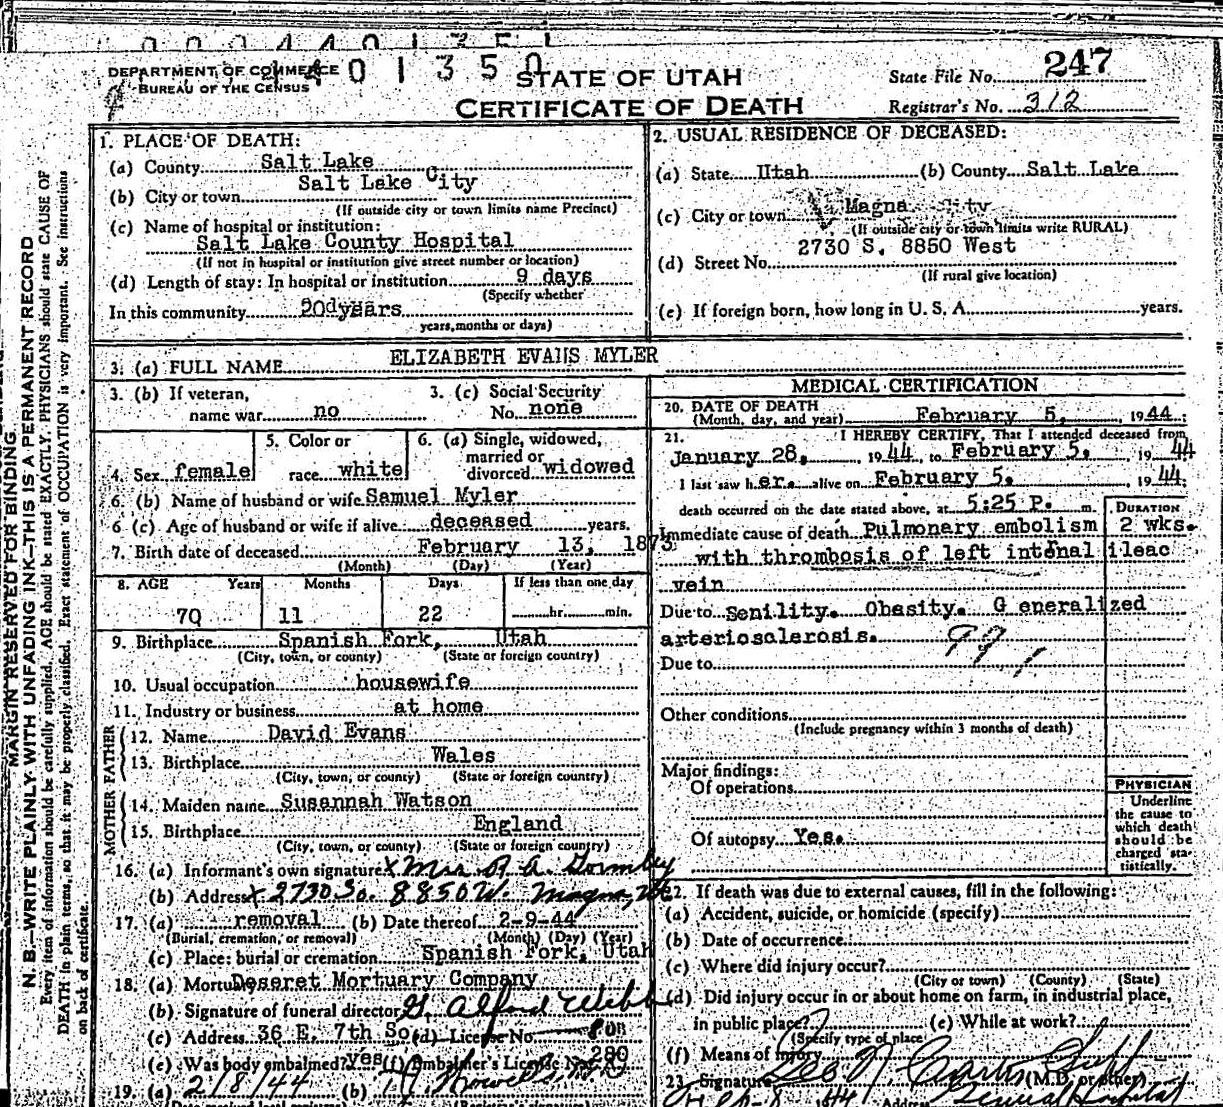 DEPARTMENT OF COMMERCE
BUREAU OF THE CENSUS
4401350
STATE OF UTAH
CERTIFICATE OF DEATH
State File No. 247
Registrar's No. 312
MARGIN RESERVED FOR BINDING
N. B.—WRITE PLAINLY WITH UNFADING INK—THIS IS A PERMANENT RECORD
Every item of information should be carefully supplied. AGE should be stated EXACTLY. PHYSICIANS should state CAUSE OF
DEATH in plain terms, so that it may be properly classified. Exact statement of OCCUPATION is very important. See instructions
on back of certificate.
1. PLACE OF DEATH:
(a) County Salt Lake
(b) City or town Salt Lake City
(If outside city or town limits name Precinct)
(c) Name of hospital or institution:
Salt Lake County Hospital
(If not in hospital or institution give street number or location)
(d) Length of stay: In hospital or institution 9 days
(Specify whether
In this community 20 years
years, months or days)
2. USUAL RESIDENCE OF DECEASED:
(a) State Utah (b) County Salt Lake
(c) City or town Magna City
(If outside city or town limits write RURAL)
2730 S. 8850 West
(d) Street No.
(If rural give location)
(e) If foreign born, how long in U. S. A. years.
3. (a) FULL NAME ELIZABETH EVANS MYLER
3. (b) If veteran,
name war no
3. (c) Social Security
No. none
4. Sex female
5. Color or
race white
6. (a) Single, widowed,
married or
divorced widowed
6. (b) Name of husband or wife Samuel Myler
6 (c) Age of husband or wife if alive deceased years.
7. Birth date of deceased February 13, 1873
(Month) (Day) (Year)
8. AGE Years Months Days If less than one day
70 11 22 hr. min.
9. Birthplace Spanish Fork, Utah
(City, town, or county) (State or foreign country)
10. Usual occupation housewife
11. Industry or business at home
FATHER
12. Name David Evans
13. Birthplace Wales
(City, town, or county) (State or foreign country)
MOTHER
14. Maiden name Susannah Watson
15. Birthplace England
(City, town, or county) (State or foreign country)
16. (a) Informant's own signature x Mrs R. A. Gormley
(b) Address x 2730 So. 8850 W. Magna, Ut
17. (a) removal (b) Date thereof 2-9-44
(Burial, cremation, or removal) (Month) (Day) (Year)
(c) Place: burial or cremation Spanish Fork, Utah
18. (a) Mortu Deseret Mortuary Company
(b) Signature of funeral director G. Alford Webb
(c) Address 36 E. 7th So. (d) License No.
(e) Was body embalmed? yes (f) Embalmer's License No. 280
19. (a) 2/8/44 (b)
MEDICAL CERTIFICATION
20. DATE OF DEATH
(Month, day, and year) February 5, 1944
21. I HEREBY CERTIFY, That I attended deceased from
January 28, 1944, to February 5, 1944
I last saw her alive on February 5, 1944.
death occurred on the date stated above, at 5:25 P. m.
DURATION
Immediate cause of death Pulmonary embolism 2 wks.
with thrombosis of left internal ileac
vein
Due to Senility. Obasity. G eneralized
arteriosclerosis.
Due to
Other conditions
(Include pregnancy within 3 months of death)
Major findings:
Of operations
Of autopsy Yes.
PHYSICIAN
Underline
the cause to
which death
should be
charged sta-
tistically.
22. If death was due to external causes, fill in the following:
(a) Accident, suicide, or homicide (specify)
(b) Date of occurrence
(c) Where did injury occur?
(City or town) (County) (State)
(d) Did injury occur in or about home on farm, in industrial place,
in public place? (e) While at work?
(Specify type of place)
(f) Means of injury
23. Signature (M.D. or other)
Address General Hospital